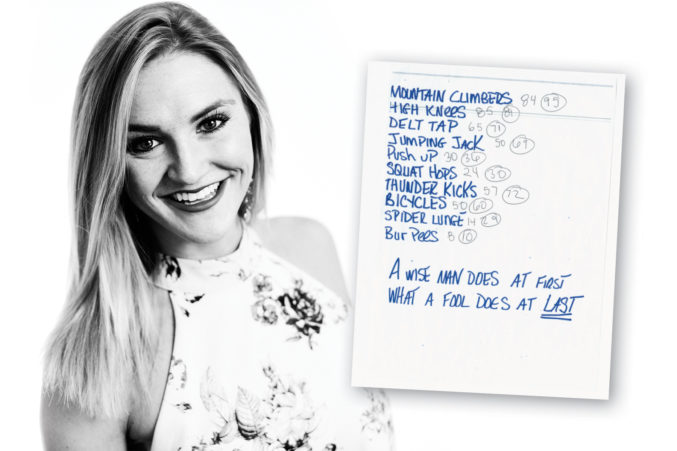 MOUNTAIN CLIMBERS 84 99
HIGH KNEES 85 81
DELT TAP 65 71
JUMPING JACK 50 69
Push up 30 36
SQUAT HOPS 24 30
THUNDER KICKS 57 72
BICYCLES 50 60
SPIDER LUNGE 14 29
Bur Pees 8 10
A WISE MAN DOES AT FIRST
WHAT A FOOL DOES AT LAST